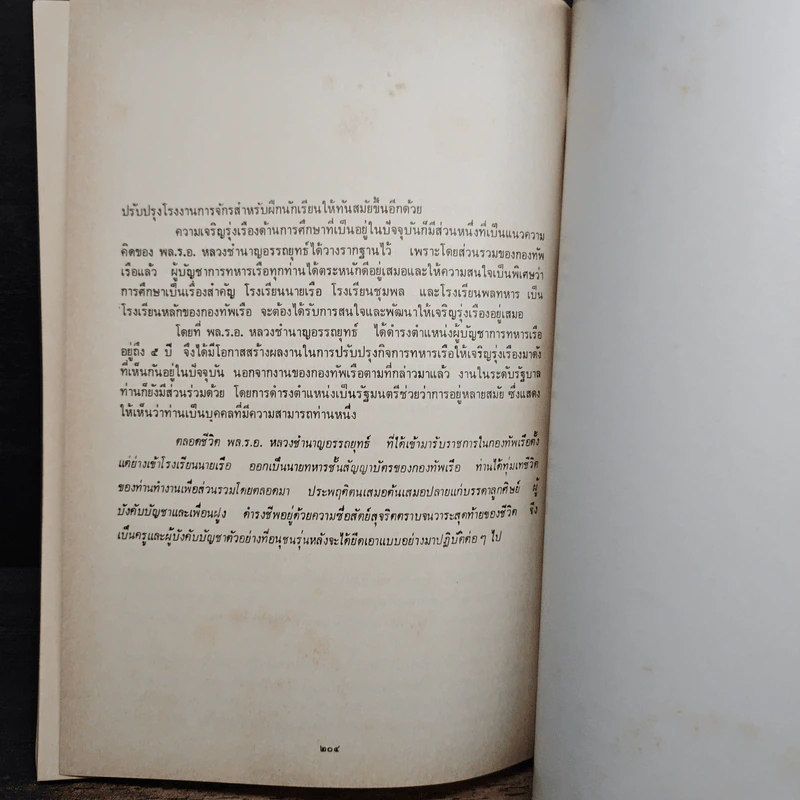 ปรับปรุงโรงงานการจักรสำหรับฝึกนักเรียนให้ทันสมัยขึ้นอีกด้วย
ความเจริญรุ่งเรืองด้านการศึกษาที่เป็นอยู่ในปัจจุบันก็มีส่วนหนึ่งที่เป็นแนวความ
คิดของ พล.ร.อ. หลวงชำนาญอรรถยุทธ์ได้วางรากฐานไว้ เพราะโดยส่วนรวมของกองทัพ
เรือแล้ว ผู้บัญชาการทหารเรือทุกท่านได้ตระหนักดีอยู่เสมอและให้ความสนใจเป็นพิเศษว่า
การศึกษาเป็นเรื่องสำคัญ โรงเรียนนายเรือ โรงเรียนชุมพล และโรงเรียนพลทหาร เป็น
โรงเรียนหลักของกองทัพเรือ จะต้องได้รับการสนใจและพัฒนาให้เจริญรุ่งเรืองอยู่เสมอ
โดยที่ พล.ร.อ. หลวงชำนาญอรรถยุทธ์ ได้ดำรงตำแหน่งผู้บัญชาการทหารเรือ
อยู่ถึง ๕ ปี จึงได้มีโอกาสสร้างผลงานในการปรับปรุงกิจการทหารเรือให้เจริญรุ่งเรืองมาดัง
ที่เห็นกันอยู่ในปัจจุบัน นอกจากงานของกองทัพเรือตามที่กล่าวมาแล้ว งานในระดับรัฐบาล
ท่านก็ยังมีส่วนร่วมด้วย โดยการดำรงตำแหน่งเป็นรัฐมนตรีช่วยว่าการอยู่หลายสมัย ซึ่งแสดง
ให้เห็นว่าท่านเป็นบุคคลที่มีความสามารถท่านหนึ่ง
ตลอดชีวิต พล.ร.อ. หลวงชำนาญอรรถยุทธ์ ที่ได้เข้ามารับราชการในกองทัพเรือตั้ง
แต่ย่างเข้าโรงเรียนนายเรือ ออกเป็นนายทหารชั้นสัญญาบัตรของกองทัพเรือ ท่านได้ทุ่มเทชีวิต
ของท่านทำงานเพื่อส่วนรวมโดยตลอดมา ประพฤติตนเสมอต้นเสมอปลายแก่บรรดาลูกศิษย์ ผู้
บังคับบัญชาและเพื่อนฝูง ดำรงชีพอยู่ด้วยความซื่อสัตย์สุจริตตราบจนวาระสุดท้ายของชีวิต จึง
เป็นครูและผู้บังคับบัญชาตัวอย่างที่อนุชนรุ่นหลังจะได้ยึดเอาแบบอย่างมาปฏิบัติต่อ ๆ ไป
๒๐๔